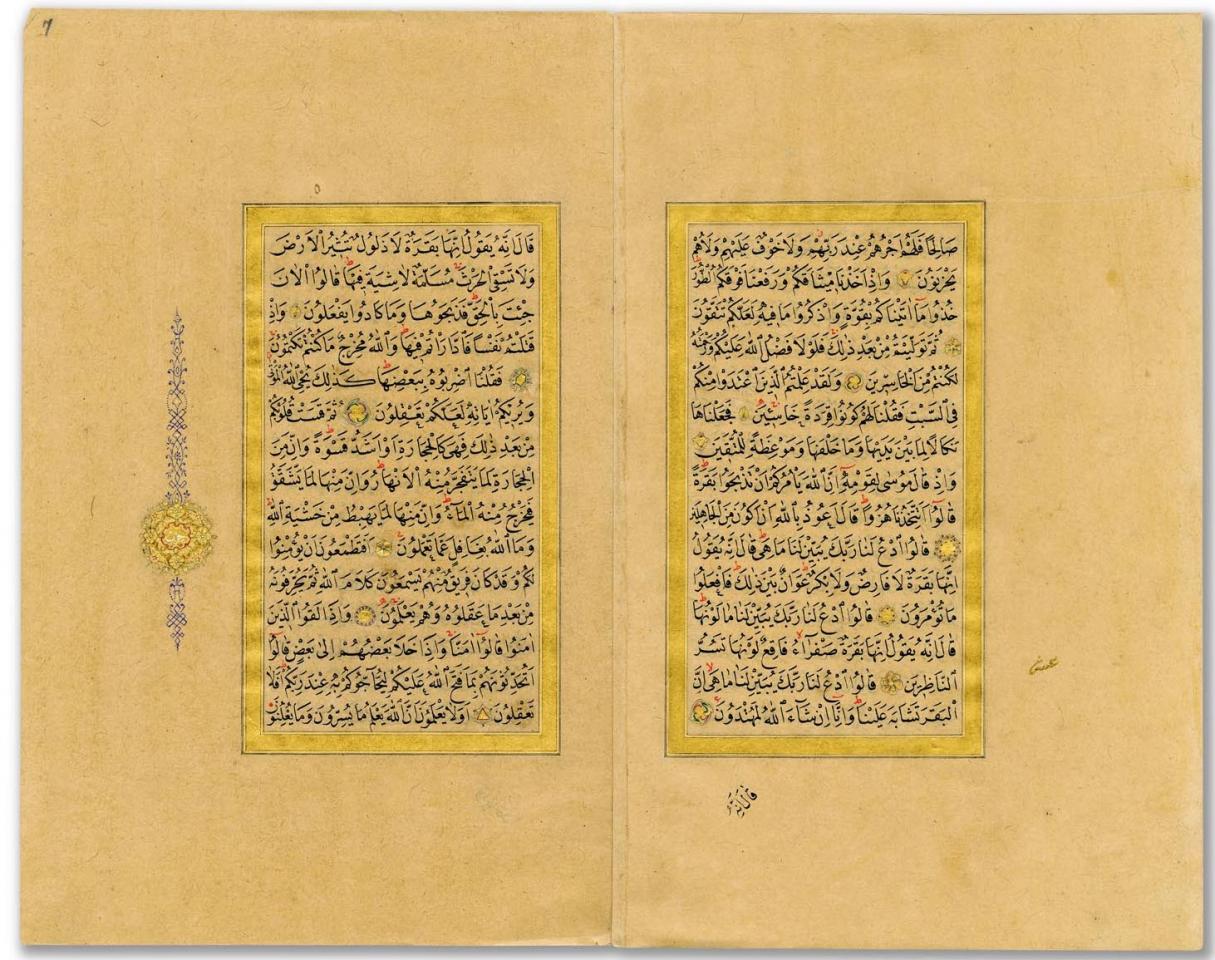 صَالِحًا فَلَهُمْ اَجْرُهُمْ عِنْدَ رَبِّهِمْ وَلَا خَوْفٌ عَلَيْهِمْ وَلَا هُمْ
يَحْزَنُونَ وَاِذْ اَخَذْنَا مِيثَاقَكُمْ وَرَفَعْنَا فَوْقَكُمُ الطُّورَ
خُذُوا مَا اٰتَيْنَاكُمْ بِقُوَّةٍ وَاذْكُرُوا مَا فِيهِ لَعَلَّكُمْ تَتَّقُونَ
ثُمَّ تَوَلَّيْتُمْ مِنْ بَعْدِ ذٰلِكَ فَلَوْلَا فَضْلُ اللّٰهِ عَلَيْكُمْ وَرَحْمَتُهُ
لَكُنْتُمْ مِنَ الْخَاسِرِينَ وَلَقَدْ عَلِمْتُمُ الَّذِينَ اعْتَدَوْا مِنْكُمْ
فِي السَّبْتِ فَقُلْنَا لَهُمْ كُونُوا قِرَدَةً خَاسِئِينَ فَجَعَلْنَاهَا
نَكَالًا لِمَا بَيْنَ يَدَيْهَا وَمَا خَلْفَهَا وَمَوْعِظَةً لِلْمُتَّقِينَ
وَاِذْ قَالَ مُوسٰى لِقَوْمِهِ اِنَّ اللّٰهَ يَأْمُرُكُمْ اَنْ تَذْبَحُوا بَقَرَةً
قَالُوا اَتَتَّخِذُنَا هُزُوًا قَالَ اَعُوذُ بِاللّٰهِ اَنْ اَكُونَ مِنَ الْجَاهِلِينَ
قَالُوا ادْعُ لَنَا رَبَّكَ يُبَيِّنْ لَنَا مَا هِيَ قَالَ اِنَّهُ يَقُولُ
اِنَّهَا بَقَرَةٌ لَا فَارِضٌ وَلَا بِكْرٌ عَوَانٌ بَيْنَ ذٰلِكَ فَافْعَلُوا
مَا تُؤْمَرُونَ قَالُوا ادْعُ لَنَا رَبَّكَ يُبَيِّنْ لَنَا مَا لَوْنُهَا
قَالَ اِنَّهُ يَقُولُ اِنَّهَا بَقَرَةٌ صَفْرَاءُ فَاقِعٌ لَوْنُهَا تَسُرُّ
النَّاظِرِينَ قَالُوا ادْعُ لَنَا رَبَّكَ يُبَيِّنْ لَنَا مَا هِيَ اِنَّ
الْبَقَرَ تَشَابَهَ عَلَيْنَا وَاِنَّا اِنْ شَاءَ اللّٰهُ لَمُهْتَدُونَ
عشر
قَالَ اِنَّهُ
7
قَالَ اِنَّهُ يَقُولُ اِنَّهَا بَقَرَةٌ لَا ذَلُولٌ تُثِيرُ الْاَرْضَ
وَلَا تَسْقِي الْحَرْثَ مُسَلَّمَةٌ لَا شِيَةَ فِيهَا قَالُوا الْاٰنَ
جِئْتَ بِالْحَقِّ فَذَبَحُوهَا وَمَا كَادُوا يَفْعَلُونَ وَاِذْ
قَتَلْتُمْ نَفْسًا فَادَّارَأْتُمْ فِيهَا وَاللّٰهُ مُخْرِجٌ مَا كُنْتُمْ تَكْتُمُونَ
فَقُلْنَا اضْرِبُوهُ بِبَعْضِهَا كَذٰلِكَ يُحْيِ اللّٰهُ الْمَوْتٰى
وَيُرِيكُمْ اٰيَاتِهِ لَعَلَّكُمْ تَعْقِلُونَ ثُمَّ قَسَتْ قُلُوبُكُمْ
مِنْ بَعْدِ ذٰلِكَ فَهِيَ كَالْحِجَارَةِ اَوْ اَشَدُّ قَسْوَةً وَاِنَّ مِنَ
الْحِجَارَةِ لَمَا يَتَفَجَّرُ مِنْهُ الْاَنْهَارُ وَاِنَّ مِنْهَا لَمَا يَشَّقَّقُ
فَيَخْرُجُ مِنْهُ الْمَاءُ وَاِنَّ مِنْهَا لَمَا يَهْبِطُ مِنْ خَشْيَةِ اللّٰهِ
وَمَا اللّٰهُ بِغَافِلٍ عَمَّا تَعْمَلُونَ اَفَتَطْمَعُونَ اَنْ يُؤْمِنُوا
لَكُمْ وَقَدْ كَانَ فَرِيقٌ مِنْهُمْ يَسْمَعُونَ كَلَامَ اللّٰهِ ثُمَّ يُحَرِّفُونَهُ
مِنْ بَعْدِ مَا عَقَلُوهُ وَهُمْ يَعْلَمُونَ وَاِذَا لَقُوا الَّذِينَ
اٰمَنُوا قَالُوا اٰمَنَّا وَاِذَا خَلَا بَعْضُهُمْ اِلٰى بَعْضٍ قَالُوا
اَتُحَدِّثُونَهُمْ بِمَا فَتَحَ اللّٰهُ عَلَيْكُمْ لِيُحَاجُّوكُمْ بِهِ عِنْدَ رَبِّكُمْ اَفَلَا
تَعْقِلُونَ اَوَلَا يَعْلَمُونَ اَنَّ اللّٰهَ يَعْلَمُ مَا يُسِرُّونَ وَمَا يُعْلِنُونَ